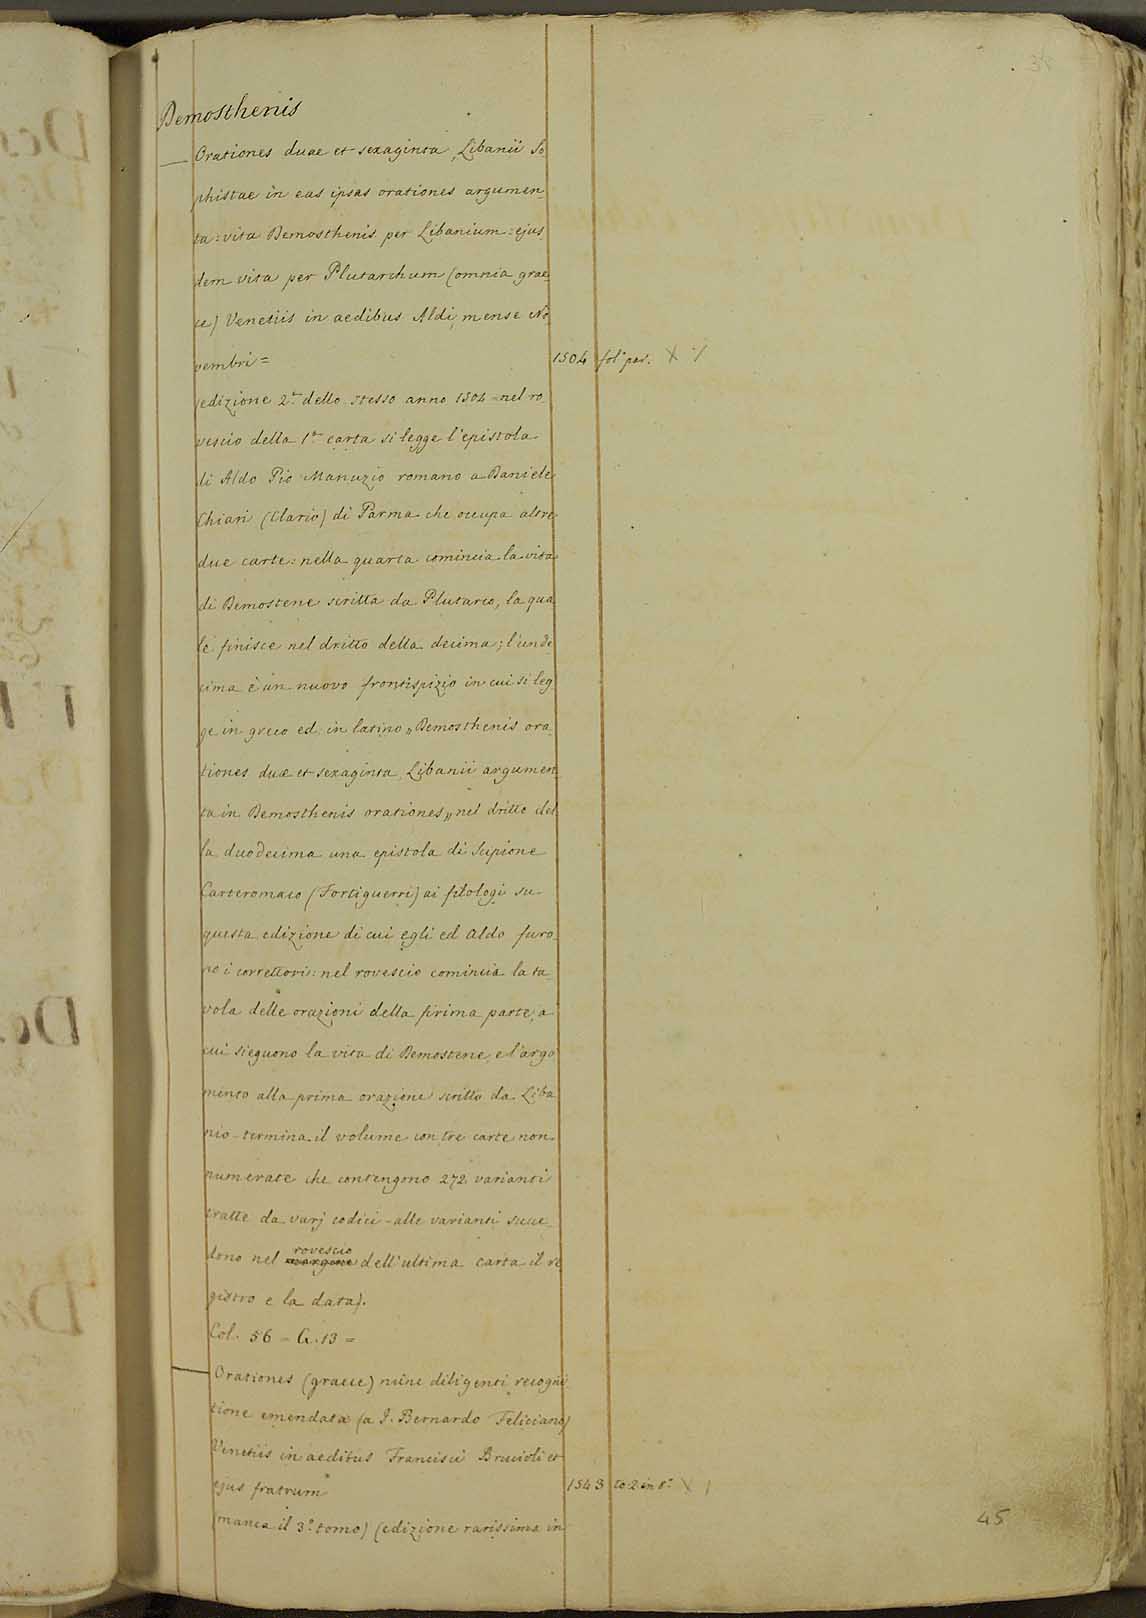 Demosthenis
Orationes duae et sexaginta, Libanii So
phistae in eas ipsas orationes argumen_
ta: vita Demosthenis per Libanium: ejus
dem vita per Plutarchum (omnia grae_
ce) Venetiis in aedibus Aldi, mense No
vembri = 1504 fol.° par. X
(edizione 2.ª dello stesso anno 1504 = nel ro
vescio della 1.ª carta si legge l'epistola
di Aldo Pio Manuzio romano a Daniele
Chiari (Clario) di Parma che occupa altre
due carte: nella quarta comincia la vita
di Demostene scritta da Plutarco, la qua
le finisce nel dritto della decima; l'unde
cima è un nuovo frontispizio in cui si leg
ge in greco ed in latino „ Demosthenis ora_
tiones duae et sexaginta, Libanii argumen_
ta in Demosthenis orationes „ nel dritto del
la duodecima una epistola di Scipione
Carteromaco (Fortiguerri) ai filologi su
questa edizione di cui egli ed Aldo furo_
no i correttori: nel rovescio comincia la ta_
vola delle orazioni della prima parte, a
cui sieguono la vita di Demostene, e l'argo
mento alla prima orazione scritto da Liba
nio - termina il volume con tre carte non
numerate che contengono 272 varianti
tratte da varj codici - alle varianti succe_
rovescio
dono nel margine dell'ultima carta il re
gistro e la data).
Col. 56 = G. 13 =
Orationes (graece) nunc diligenti recogni
tione emendatae (a J. Bernardo Feliciano)
Venetiis in aedibus Francisci Brucioli et
ejus fratrum 1543 to. 2 in 8.° X
(manca il 3.° tomo) (edizione rarissima in
45